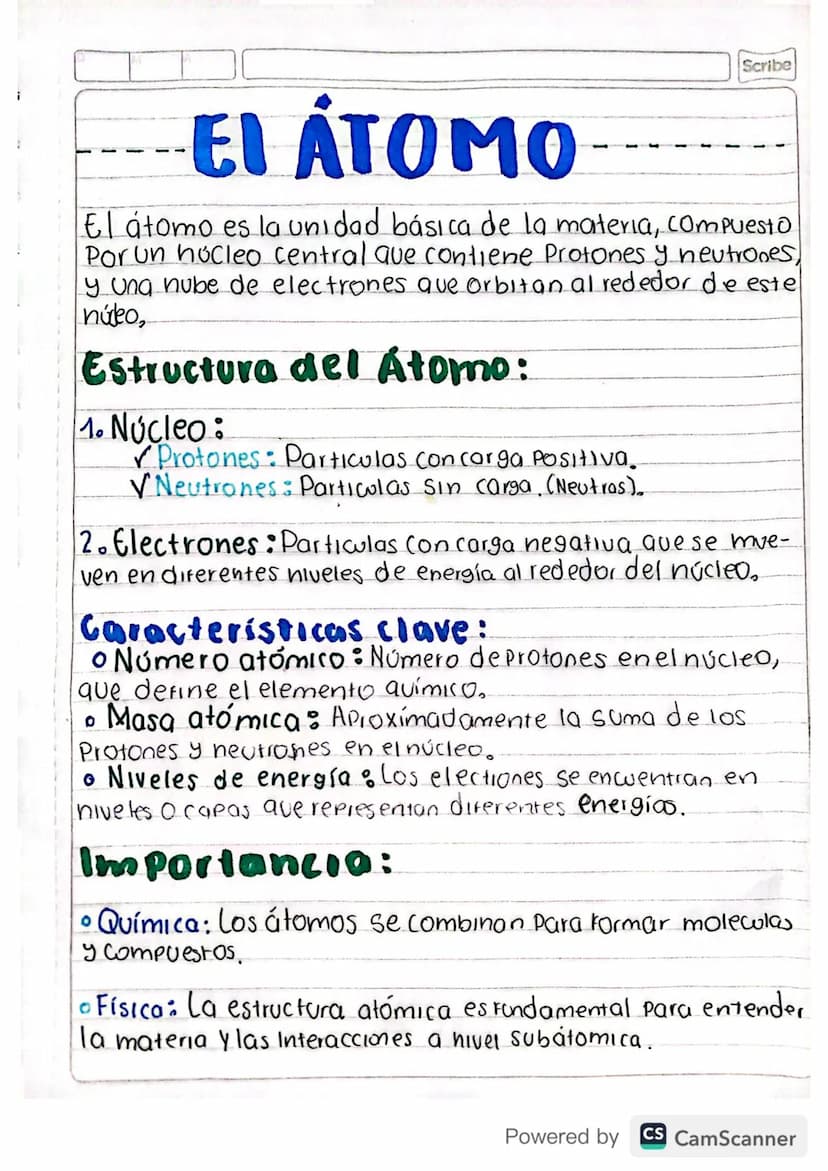 Scribe
El ÁTOMO
El átomo es la unidad básica de la materia, compuesto
Por un núcleo central que contiene Protones y neutrones,
y una nube de electrones que orbitan al rededor de este
núleo,
Estructura del Átomo:
1. Núcleo:
✓ Protones: Particulas con carga Positiva.
✓ Neutrones: Particulas Sin carga. (Neutras).
2. Electrones: Particulas con carga negativa que se mue-
ven en diferentes niveles de energía al rededor del núcleo.
Características clave:
o Número atómico: Número de Protones en el núcleo,
que define el elemento químico.
o Masa atómica: Aproximadamente la suma de los
Protones y neutrones en el núcleo.
o Niveles de energía: Los electrones se encuentran en
niveles o capas que representan diferentes energías.
Importancia:
o Química: Los átomos se combinan para formar moleculas
y compuestos.
o Física: La estructura atómica es fundamental para entender
la materia y las Interacciones a nivel subátomica.
Powered by CS CamScanner